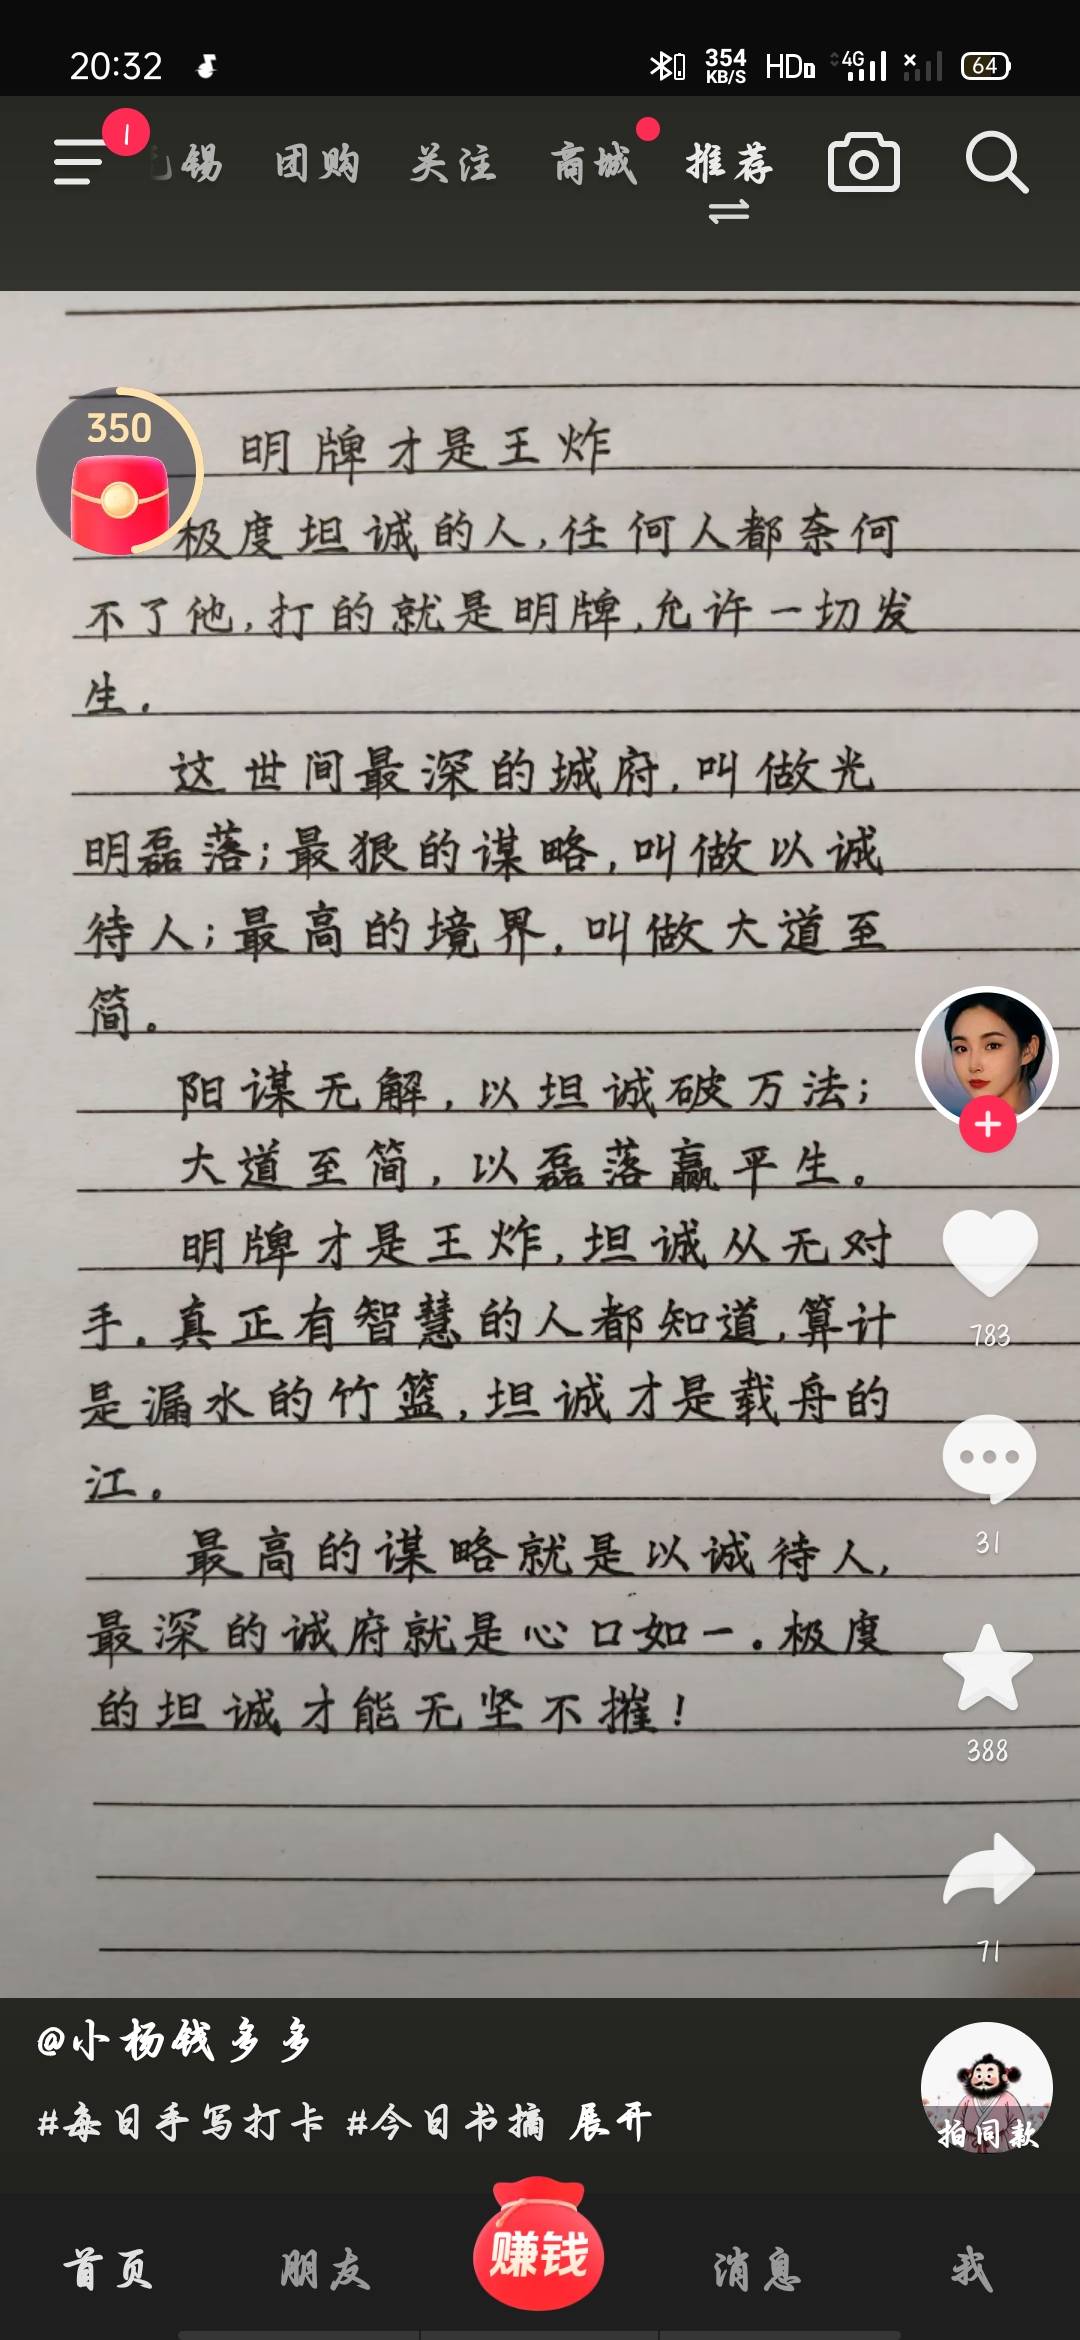 20:32
354
KB/S
HD
4G
64
1
锡 团购 关注 商城 推荐
350
明牌才是王炸
极度坦诚的人,任何人都奈何
不了他,打的就是明牌,允许一切发
生.
这世间最深的城府,叫做光
明磊落;最狠的谋略,叫做以诚
待人;最高的境界,叫做大道至
简。
阳谋无解,以坦诚破万法;
大道至简,以磊落赢平生。
明牌才是王炸,坦诚从无对
手.真正有智慧的人都知道,算计
是漏水的竹篮,坦诚才是载舟的
江。
最高的谋略就是以诚待人,
最深的诚府就是心口如一。极度
的坦诚才能无坚不摧!
783
31
388
71
@小杨钱多多
#每日手写打卡 #今日书摘 展开
拍同款
首页 朋友 赚钱 消息 我